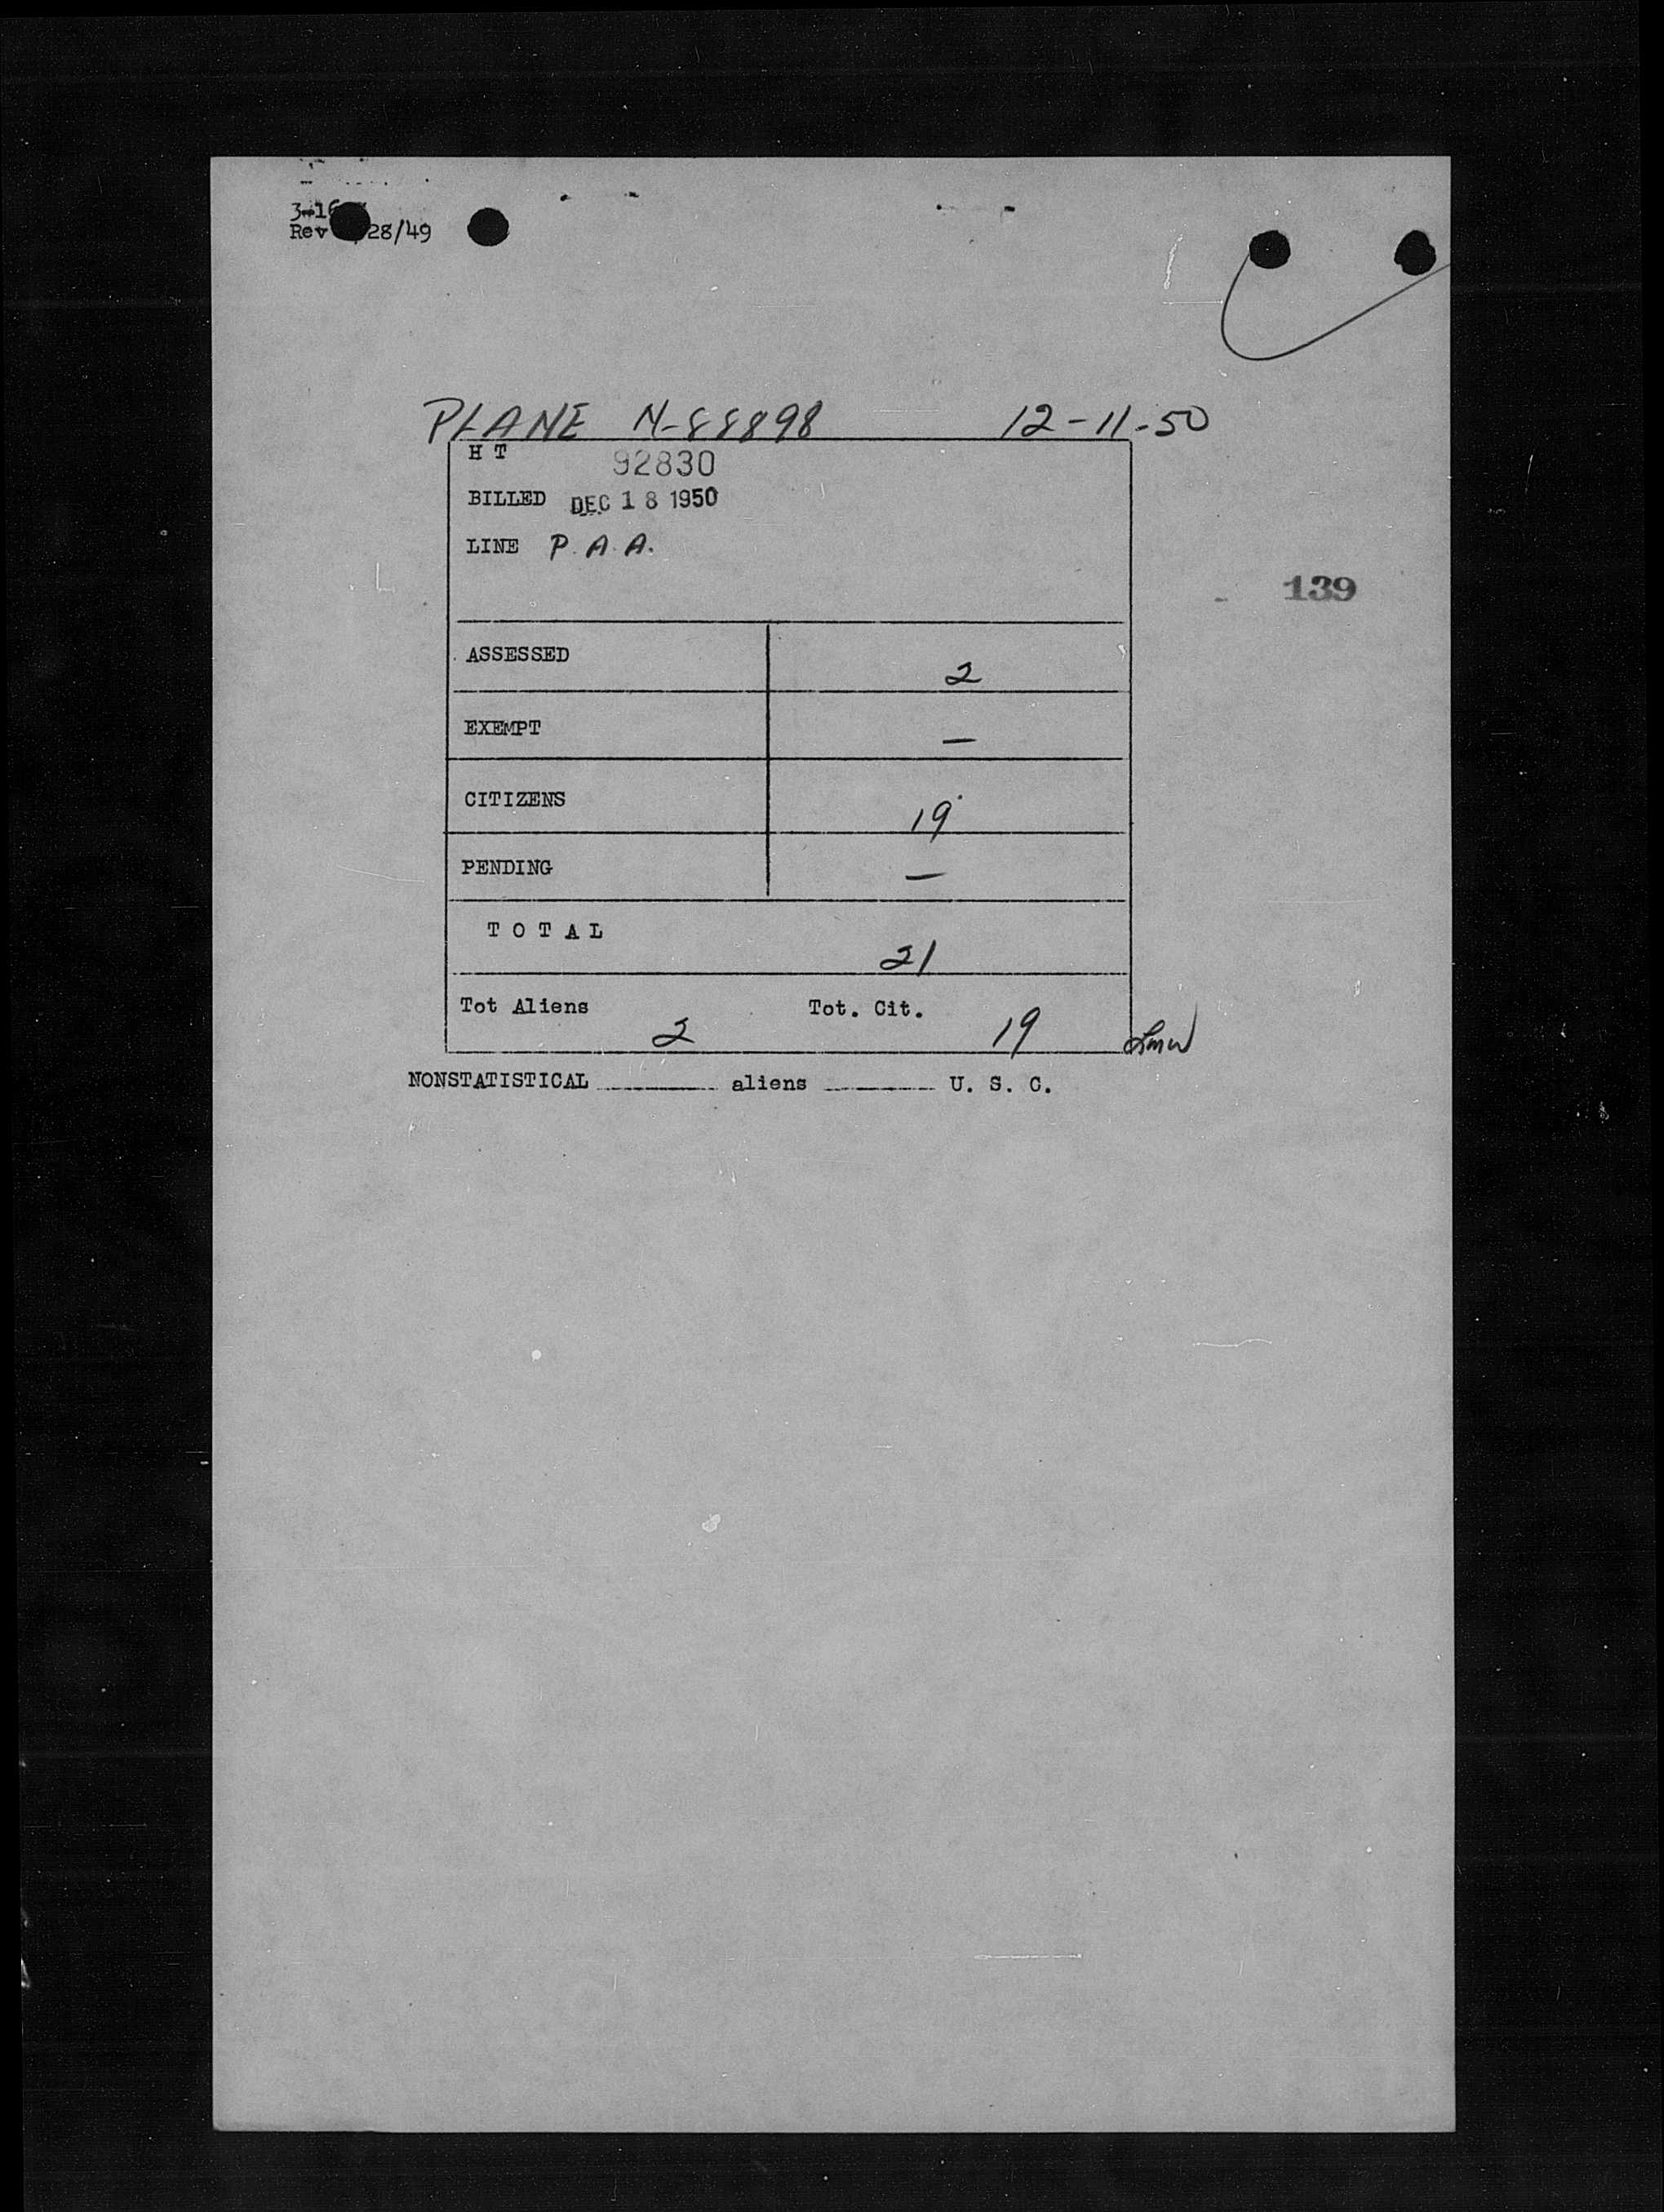 Rev 28/49
PLANE N-88898 12-11-50
H T 92830
BILLED DEC 18 1950
LINE P. A. A.
139
ASSESSED 2
EXEMPT —
CITIZENS 19
PENDING —
T O T A L 21
Tot Aliens 2 Tot. Cit. 19
NONSTATISTICAL ______ aliens ______ U. S. C.